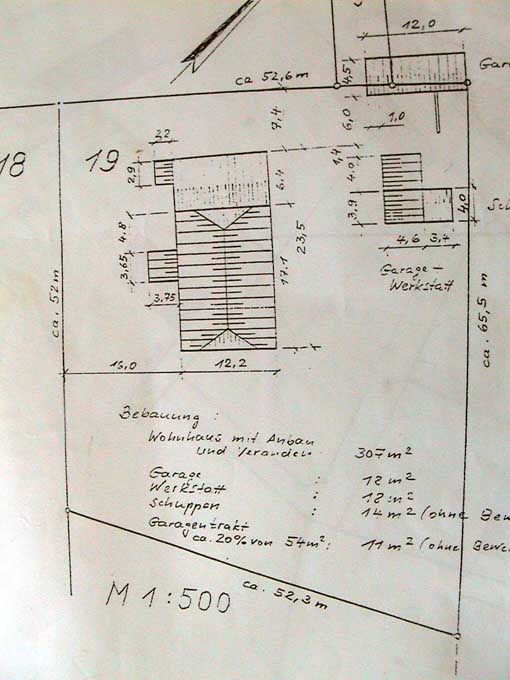 12,0
ca 52,6 m
4,5
Gara
7,4
6,0
1,0
18
19
2,2
2,9
6,4
1,4
4,0
3,9
4,0
Sch
4,8
23,5
17,1
4,6
3,4
3,65
Garage -
Werkstatt
3,75
ca. 52 m
ca. 65,5 m
16,0
12,2
Bebauung :
Wohnhaus mit Anbau
und Veranden 307 m²
Garage : 12 m²
Werkstatt : 12 m²
Schuppen : 14 m² (ohne Bew
Garagentrakt
ca. 20% von 54 m² : 11 m² (ohne Bewe
ca. 52,3 m
M 1 : 500